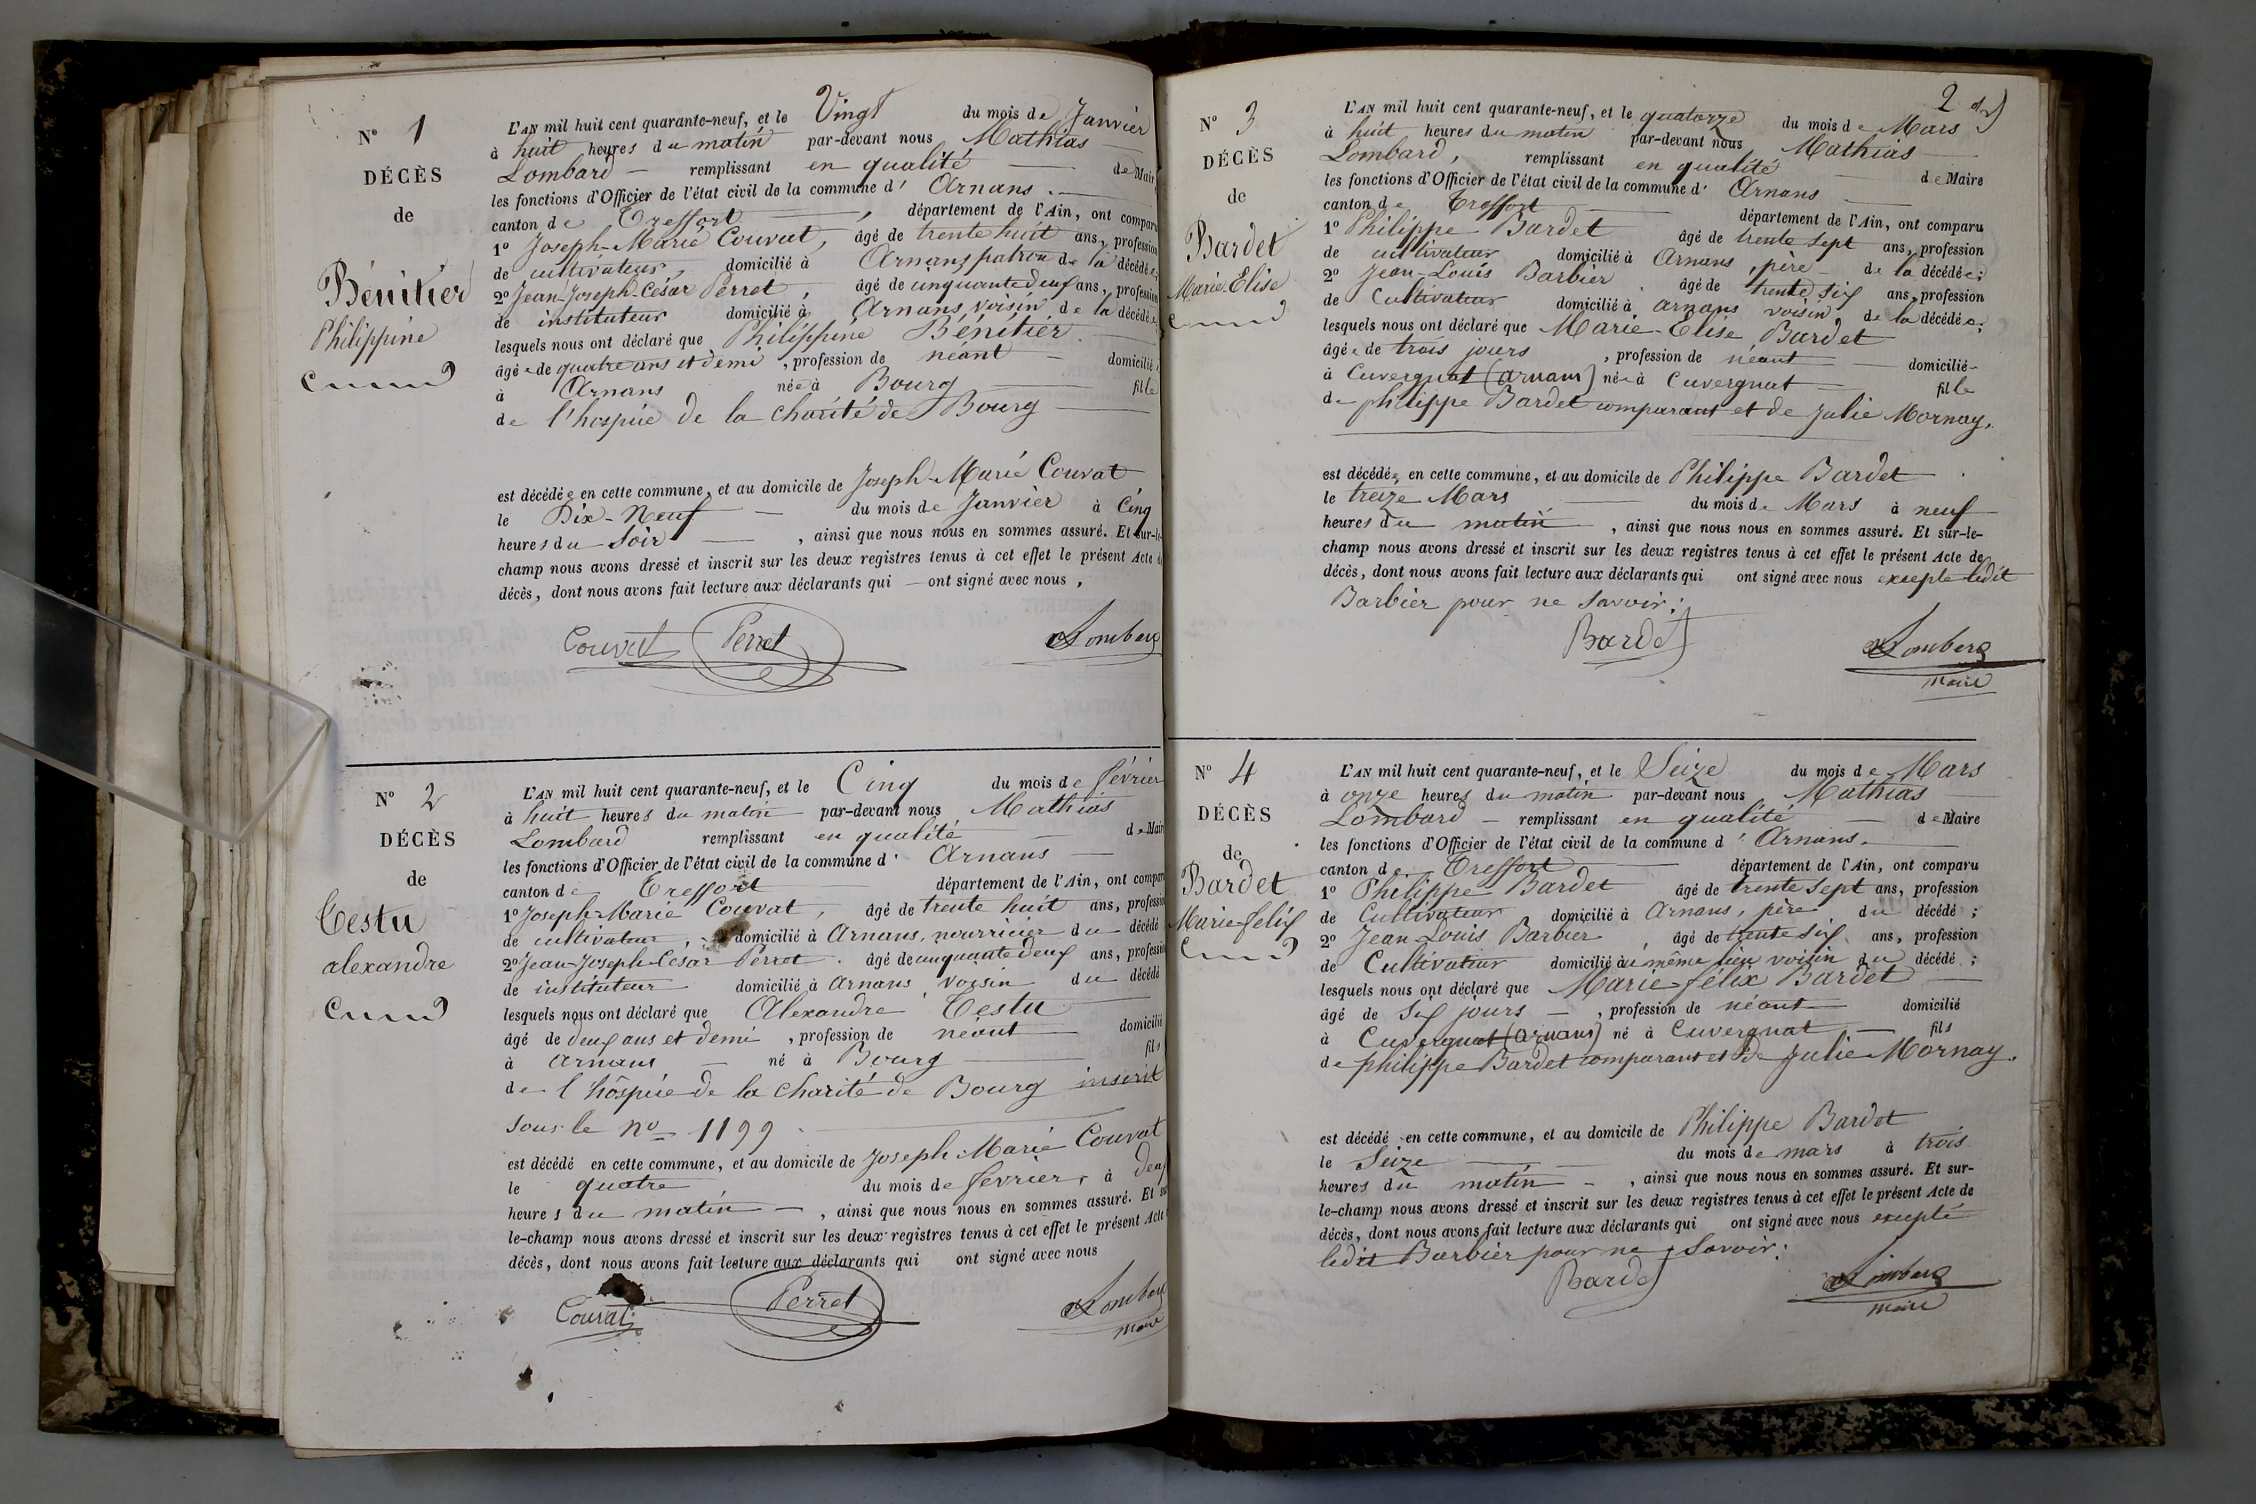 N° 1
DÉCÈS
de
Bénitier
Philippine
L'AN mil huit cent quarante-neuf, et le Vingt du mois de Janvier
à huit heures du matin par-devant nous Mathias
Lombard remplissant en qualité de Maire
les fonctions d'Officier de l'état civil de la commune d' Arnans
canton de Treffort, département de l'Ain, ont comparu
1° Joseph-Marie Couvat, âgé de trente huit ans, profession
de cultivateur, domicilié à Arnans patron de la décédée;
2° Jean-Joseph-César Perret, âgé de cinquante deux ans, profession
de instituteur domicilié à Arnans, voisin de la décédée
lesquels nous ont déclaré que Philippine Bénitier
âgée de quatre ans et demi, profession de néant domicilié
à Arnans née à Bourg fille
de l'hospice de la charité de Bourg
est décédée en cette commune, et au domicile de Joseph-Marie Couvat
le Dix-Neuf du mois de Janvier à Cinq
heures du soir, ainsi que nous nous en sommes assuré. Et sur-le-
champ nous avons dressé et inscrit sur les deux registres tenus à cet effet le présent Acte de
décès, dont nous avons fait lecture aux déclarants qui ont signé avec nous,
Couvat Perret Lombard
N° 2
DÉCÈS
de
Testu
alexandre
L'AN mil huit cent quarante-neuf, et le Cinq du mois de février
à huit heures du matin par-devant nous Mathias
Lombard remplissant en qualité de Maire
les fonctions d'Officier de l'état civil de la commune d' Arnans
canton de Treffort département de l'Ain, ont comparu
1° Joseph-Marie Couvat, âgé de trente huit ans, profession
de cultivateur, domicilié à Arnans, nourricier du décédé
2° Jean-Joseph-César Perret. âgé de cinquante deux ans, profession
de instituteur domicilié à Arnans, voisin du décédé
lesquels nous ont déclaré que Alexandre Testu
âgé de deux ans et demi, profession de néant domicilié
à Arnans né à Bourg fils
de l'hospice de la charité de Bourg inscrit
sous le n° 1199
est décédé en cette commune, et au domicile de Joseph Marie Couvat
le quatre du mois de février, à deux
heures du matin, ainsi que nous nous en sommes assuré. Et sur-
le-champ nous avons dressé et inscrit sur les deux registres tenus à cet effet le présent Acte
décès, dont nous avons fait lecture aux déclarants qui ont signé avec nous
Couvat Perret Lombard
maire
2
N° 3
DÉCÈS
de
Bardet
Marie-Elise
L'AN mil huit cent quarante-neuf, et le quatorze du mois de Mars
à huit heures du matin par-devant nous Mathias
Lombard, remplissant en qualité de Maire
les fonctions d'Officier de l'état civil de la commune d' Arnans
canton de Treffort département de l'Ain, ont comparu
1° Philippe Bardet âgé de trente sept ans, profession
de cultivateur domicilié à Arnans, père de la décédée;
2° Jean-Louis Barbier. âgé de trente six ans, profession
de Cultivateur domicilié à arnans voisin de la décédée;
lesquels nous ont déclaré que Marie-Elise Bardet
âgée de trois jours, profession de néant domicilié
à Cuvergnat (arnans) née à Cuvergnat fille
de philippe Bardet comparant et de Julie Mornay.
est décédée en cette commune, et au domicile de Philippe Bardet
le treize Mars du mois de Mars à neuf
heures du matin, ainsi que nous nous en sommes assuré. Et sur-le-
champ nous avons dressé et inscrit sur les deux registres tenus à cet effet le présent Acte de
décès, dont nous avons fait lecture aux déclarants qui ont signé avec nous excepte ledit
Barbier pour ne savoir:
Bardet Lombard
maire
N° 4
DÉCÈS
de
Bardet
Marie-felix
L'AN mil huit cent quarante-neuf, et le Seize du mois de Mars
à onze heures du matin par-devant nous Mathias
Lombard remplissant en qualité de Maire
les fonctions d'Officier de l'état civil de la commune d' Arnans.
canton de Treffort département de l'Ain, ont comparu
1° Philippe Bardet âgé de trente sept ans, profession
de Cultivateur domicilié à Arnans, père du décédé;
2° Jean-Louis Barbier, âgé de trente six ans, profession
de Cultivateur domicilié au même lieu voisin du décédé;
lesquels nous ont déclaré que Marie-félix Bardet
âgé de six jours, profession de néant domicilié
à Cuvergnat (Arnans) né à Cuvergnat fils
de philippe Bardet comparant et de Julie Mornay.
est décédé en cette commune, et au domicile de Philippe Bardet
le Seize du mois de mars à trois
heures du matin, ainsi que nous nous en sommes assuré. Et sur-
le-champ nous avons dressé et inscrit sur les deux registres tenus à cet effet le présent Acte de
décès, dont nous avons fait lecture aux déclarants qui ont signé avec nous excepté
ledit Barbier pour ne savoir:
Bardet Lombard
maire